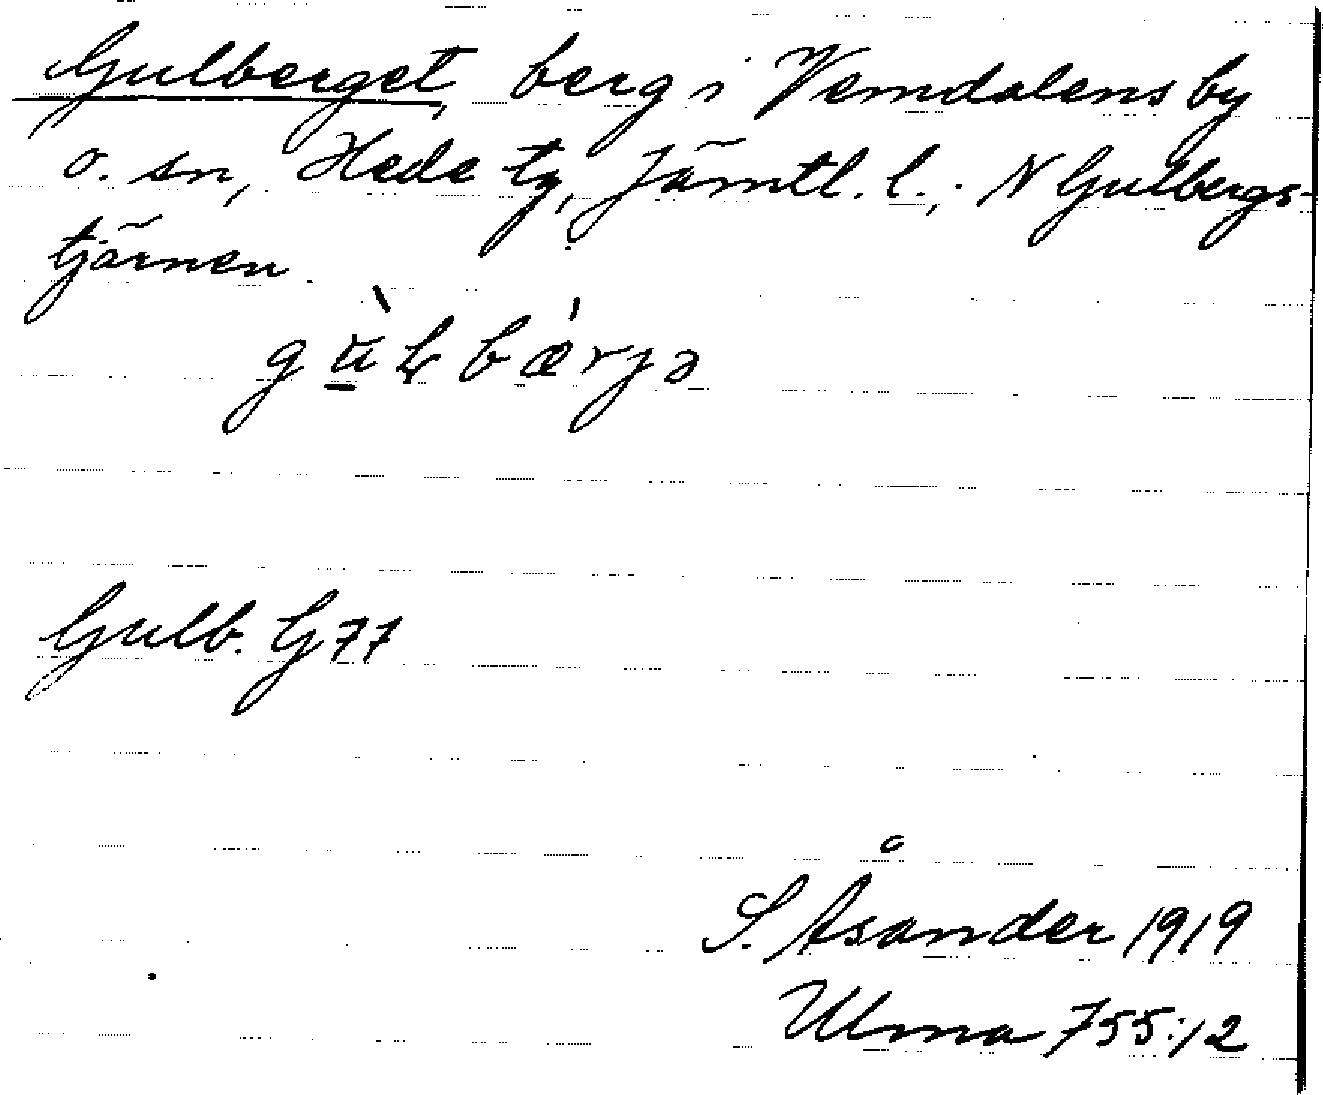 Gulberget, berg i Vemdalens by
o. sn, Hede tg, Jämtl. l.; N Gulbergs-
tjärnen.
Gulb. G77
S. Åsander 1919
Ulma 755:12